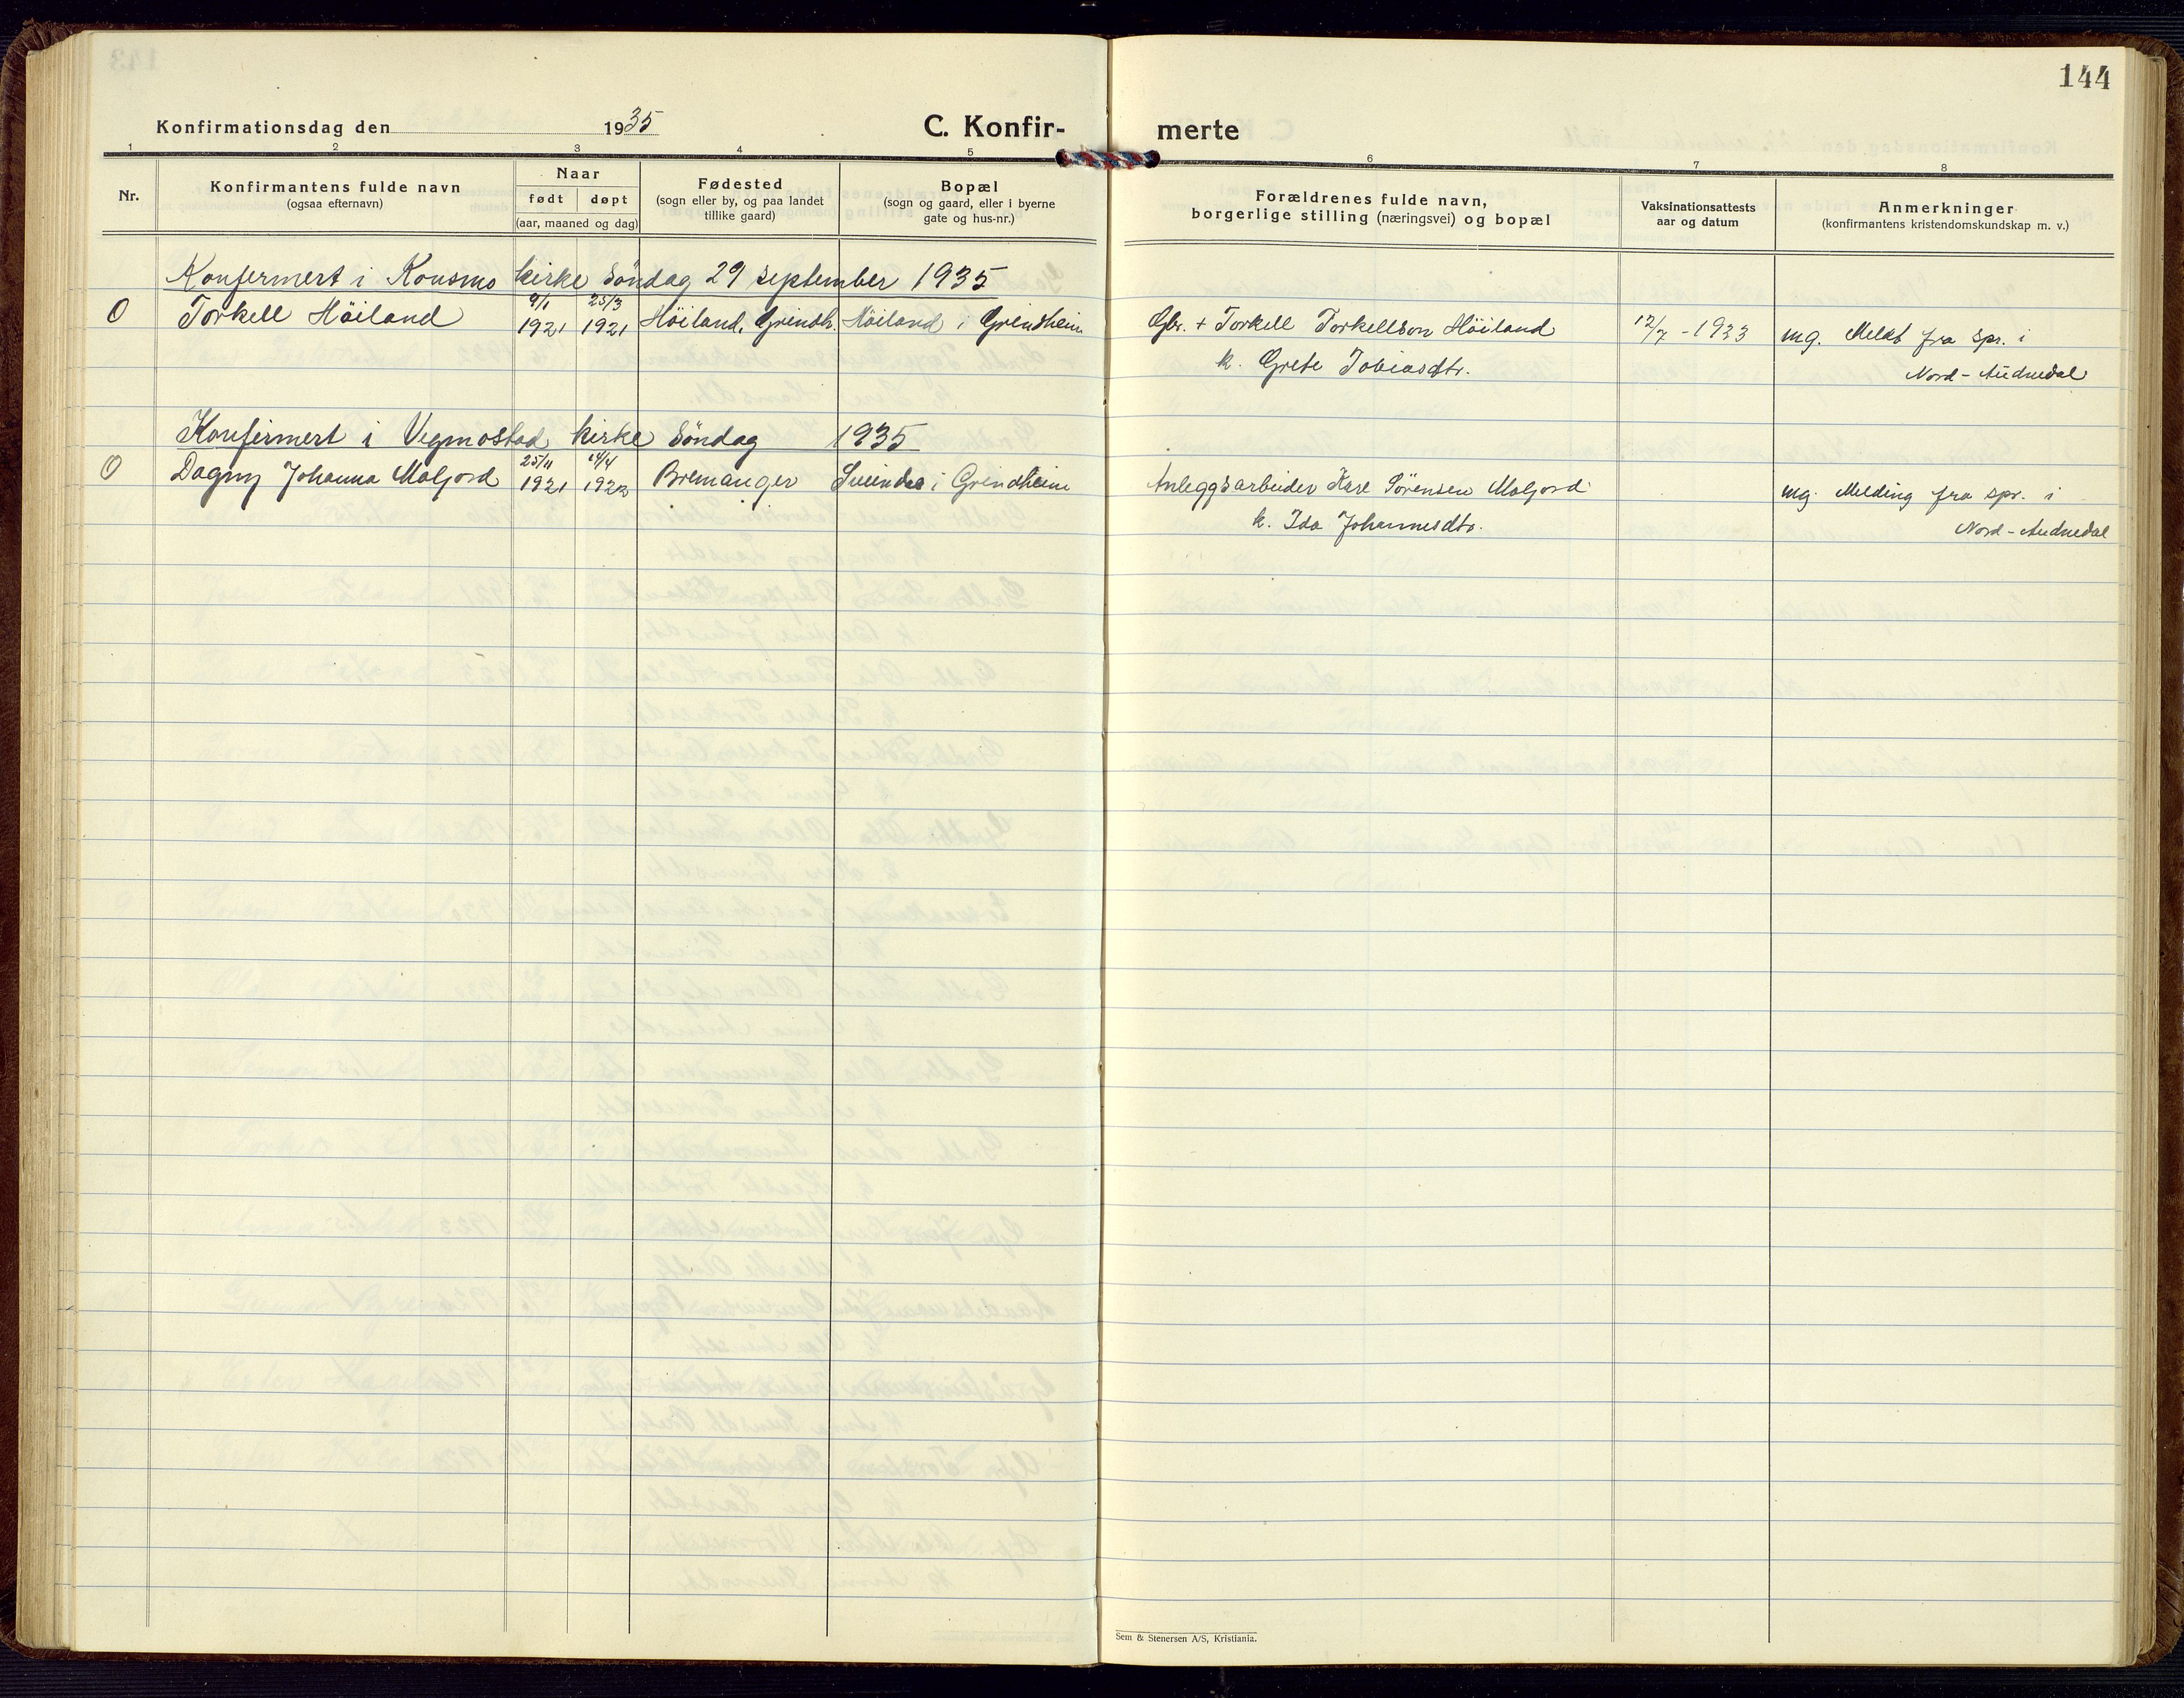 144
Konfirmationsdag den 1935 C. Konfirmerte
1 2 3 4 5 6 7 8
Nr.
Konfirmantens fulde navn
(ogsaa efternavn)
Naar
født døpt
(aar, maaned og dag)
Fødested
(sogn eller by, og paa landet
tillike gaard)
Bopæl
(sogn og gaard, eller i byerne
gate og hus-nr.)
Forældrenes fulde navn,
borgerlige stilling (næringsvei) og bopæl
Vaksinationsattests
aar og datum
Anmerkninger
(konfirmantens kristendomskundskap m. v.)
Konfermert i Konsmo kirke søndag 29 september 1935
9/1 25/3
0 Torkell Høiland 1921 1921 Høiland, Grindh. Høiland i Grindheim Gbr. + Torkell Torkellson Høiland 12/7 - 1933 mg. Meldt fra spr. i
k. Grete Tobiasdtr. Nord-Audnedal
Konfirmert i Vigmostad kirke søndag 1935
25/11 14/4
0 Dagny Johanna Maljord 1921 1922 Bremanger i Grindheim Anleggsarbeider Karl Sørensen Maljord mg. Melding fra spr. i
k. Ida Johannesdtr. Nord-Audnedal
Sem & Stenersen A/S, Kristiania.